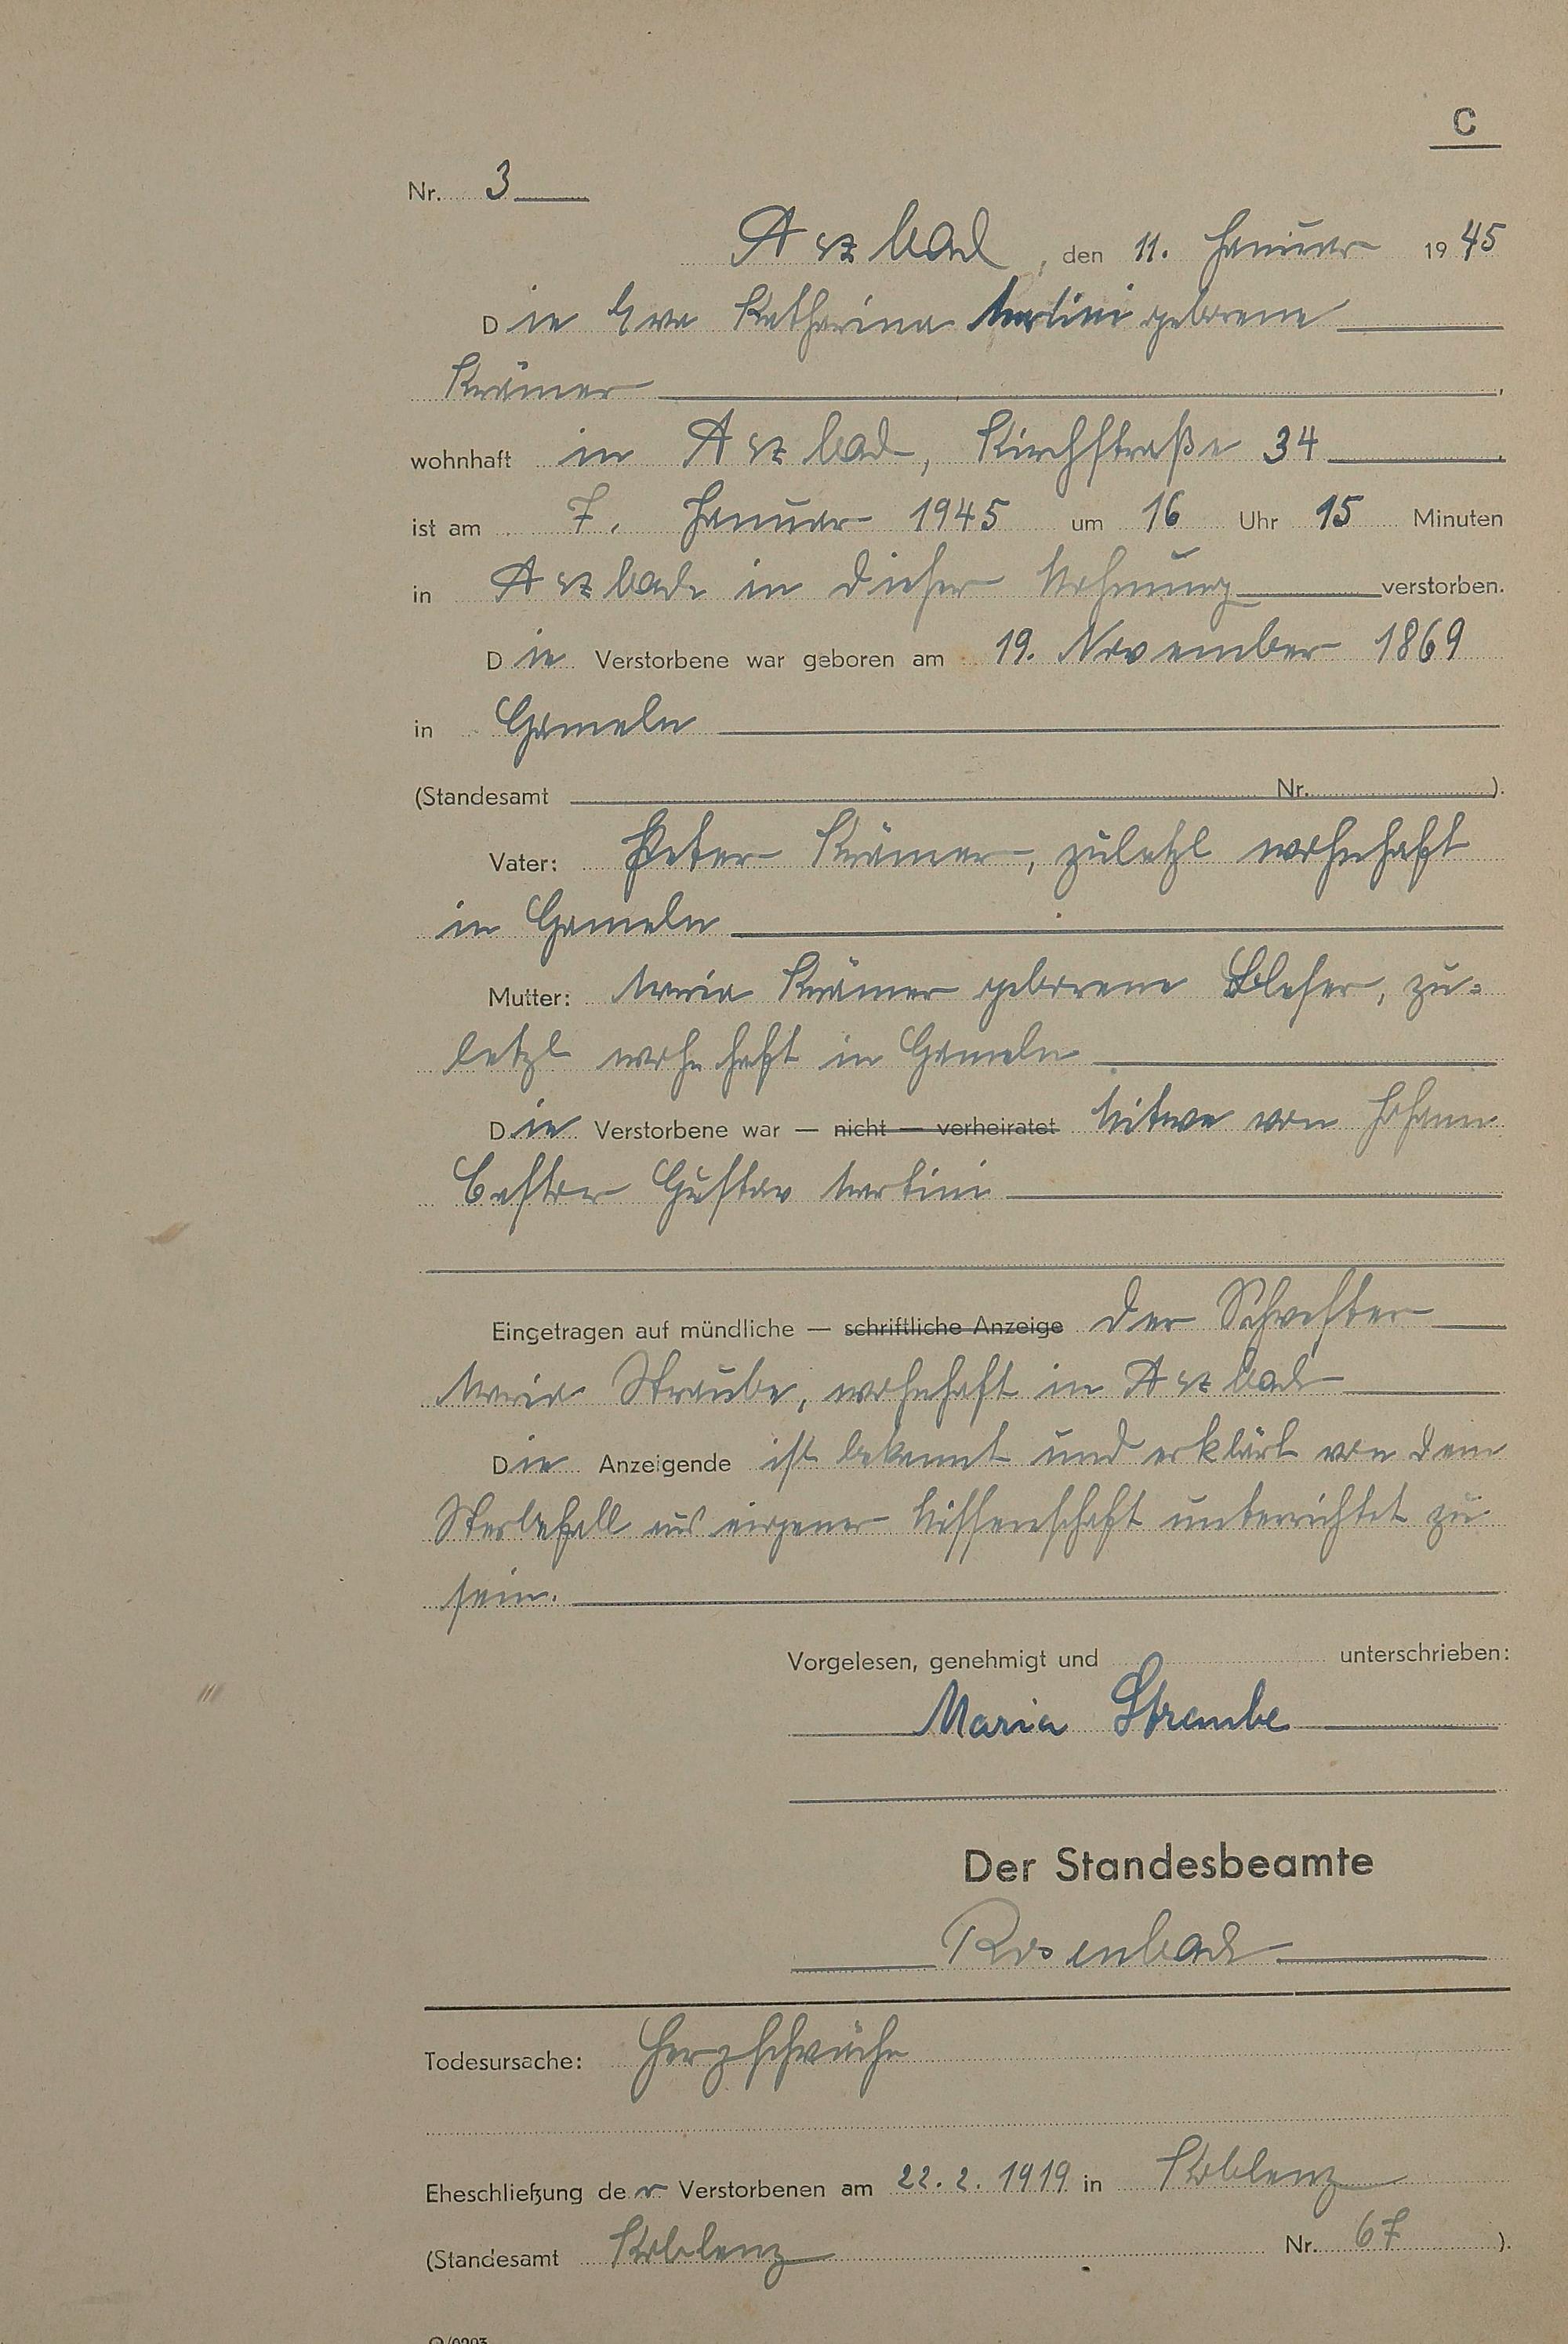 C
Nr. 3
Arzbach, den 11. Januar 1945
Die Eva Katharina Martini geborene
Krämer,
wohnhaft in Arzbach, Kirchstraße 34
ist am 7. Januar 1945 um 16 Uhr 15 Minuten
in Arzbach in dieser Wohnung verstorben.
Die Verstorbene war geboren am 19. November 1869
in
(Standesamt Nr. ).
Vater: Peter Krämer, zuletzt wohnhaft
in
Mutter: Maria Krämer geborene Bleser, zu=
letzt wohnhaft in
Die Verstorbene war — nicht — verheiratet Witwe von Johann
Gustav Martini
Eingetragen auf mündliche — schriftliche Anzeige der Schwester
Maria Straube, wohnhaft in Arzbach
Die Anzeigende ist bekannt und erklärt von dem
Sterbefall aus eigener Wissenschaft unterrichtet zu
sein.
Vorgelesen, genehmigt und unterschrieben:
Maria Straube
Der Standesbeamte
Rosenbach
Todesursache: Herzschwäche
Eheschließung der Verstorbenen am 22.2.1919 in Koblenz
(Standesamt Koblenz Nr. 67 ).